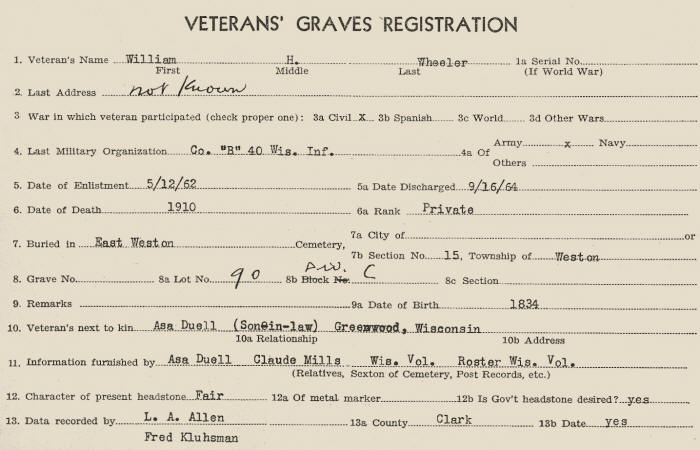 VETERANS' GRAVES REGISTRATION
1. Veteran's Name William H. Wheeler 1a Serial No.
First Middle Last (If World War)
2. Last Address not Known
3 War in which veteran participated (check proper one): 3a Civil x 3b Spanish 3c World 3d Other Wars
4. Last Military Organization Co. "B" 40 Wis. Inf. 4a Of Army x Navy
Others
5. Date of Enlistment 5/12/62 5a Date Discharged 9/16/64
6. Date of Death 1910 6a Rank Private
7. Buried in East Weston Cemetery, 7a City of or
7b Section No. 15, Township of Weston
8. Grave No. 8a Lot No. 90 8b Block No. Div. C 8c Section
9. Remarks 9a Date of Birth 1834
10. Veteran's next to kin Asa Duell (Son-in-law) Greenwood, Wisconsin
10a Relationship 10b Address
11. Information furnished by Asa Duell Claude Mills Wis. Vol. Roster Wis. Vol.
(Relatives, Sexton of Cemetery, Post Records, etc.)
12. Character of present headstone Fair 12a Of metal marker 12b Is Gov't headstone desired? yes
13. Data recorded by L. A. Allen 13a County Clark 13b Date yes
Fred Kluhsman